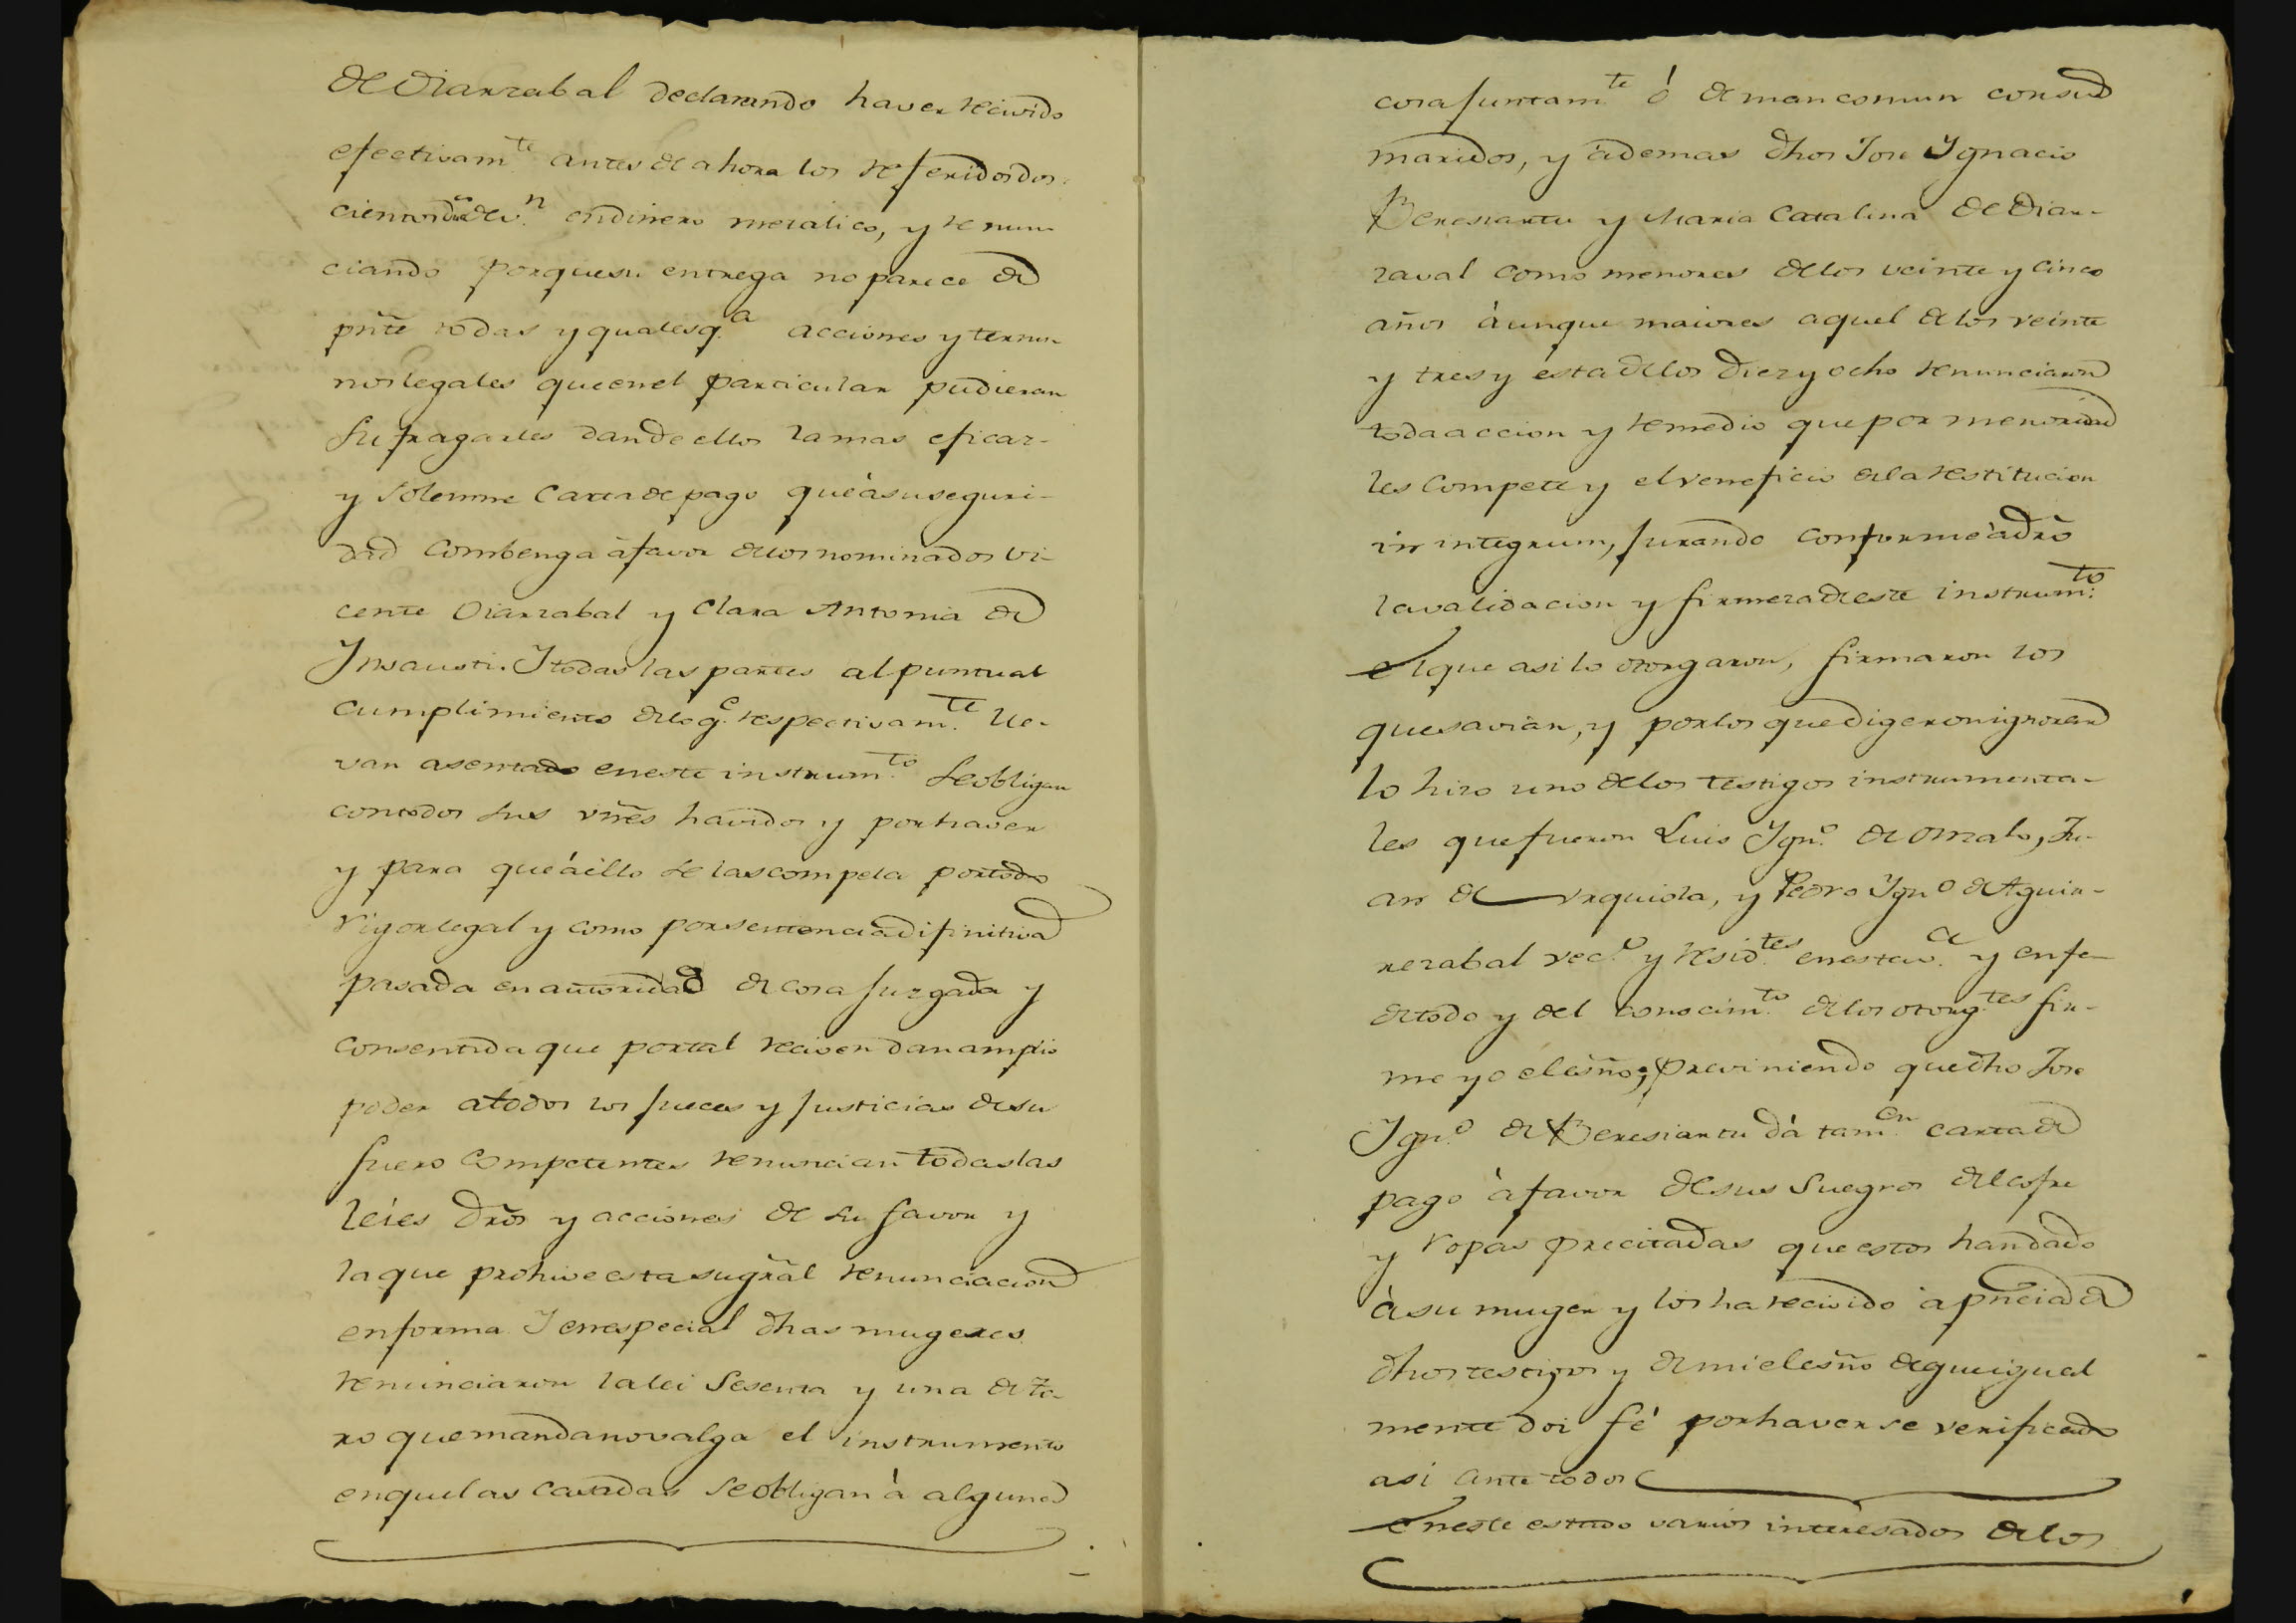 de Oiarzabal declarando haver recivido
efectivam.te antes de ahora los referidos dos-
cientos d.s de v.n en dinero metalico, y renun-
ciando porque su entrega no parece de
pñte todas y qualesq.a acciones y termi-
nos legales que en el particular pudieran
sufragarles dan de ellos la mas eficaz-
y solemne Carta de pago que à su seguri-
dad combenga à favor de los nominados Vi-
cente Oiarzabal y Clara Antonia de
Insausti. Y todas las partes al puntual
cumplimiento de lo q.e respectivam.te lle-
van asentado en este instrum.to se obligan
con todos sus vñes havidos y por haver
y para que áello se las compela por todo
rigor legal y como por sentencia difinitiva
pasada en autoridad de cosa juzgada y
consentida que por tal reciven dan amplio
poder a todos los jueces y justicias de su
fuero competentes renuncian todas las
leies dros y acciones de su favor y
la que prohive esta su gral renunciacion
en forma Y en especial dhas mugeres
renunciaron la lei Sesenta y una de To-
ro que manda no valga el instrumento
en que las casadas se obligan à alguna
cosa juntam.te ó de mancomun con sus
maridos, y ademas dhos Jose Ygnacio
Beresiartu y Maria Catalina de Oiar-
zaval como menores de los veinte y cinco
años àunque maiores aquel de los veinte
y tres y ésta de los diez y ocho renunciaron
toda accion y remedio que por menoridad
les compete y el veneficio de la restitucion
in integrum, jurando conforme à dro
la validacion y firmeza de este instrum.to
el que asi lo otorgaron, firmaron los
que savian, y por los que digeron ignorar
lo hizo uno de los testigos instrumenta-
les que fueron Luis Ygn.o de Orzalo, Ju-
an de Urquiola, y Pedro Ygn.o de Aguir-
rezabal vec.o y resid.tes en esta v.a y en fe
de todo y del conocim.to de los otorg.tes fir-
me yo el esño; previniendo que dho Jose
Ygn.o de Beresiartu dà tam.en carta de
pago à favor de sus Suegros del cofre
y ropas precitadas que estos han dado
à su muger y los ha recivido à pñcia de
dhos testigos y de mi el esño de que igual
mente doi fé por haverse verificado
asi ante todos
En este estado varios interesados de los